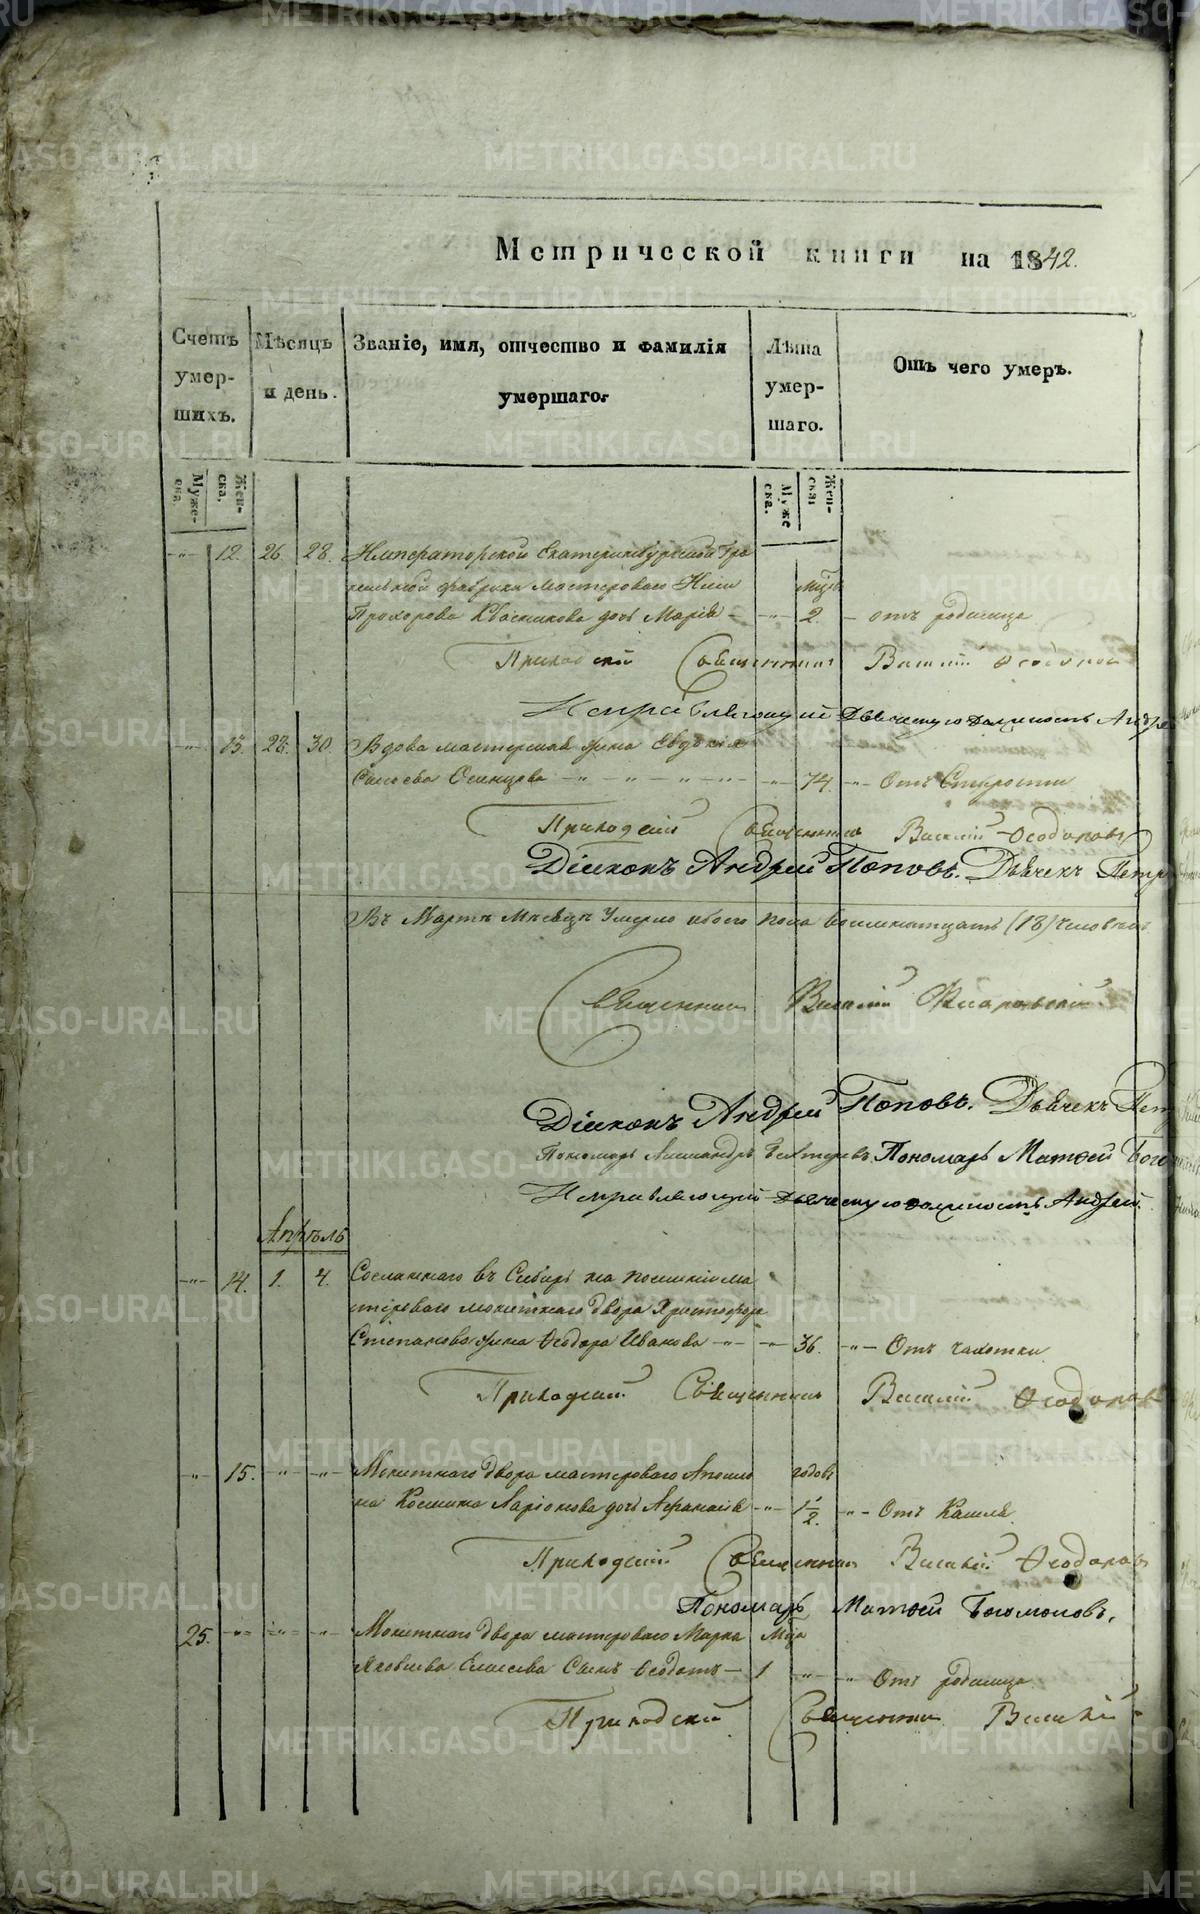 Метрической книги на 1842.
Счетъ умер- шихъ.
Мѣсяцъ и день.
Званіе, имя, отчество и фамилія умершаго.
Лѣта умер- шаго.
Отъ чего умеръ.
Муже- ска. Жен- ска.
Муже ска. Жен- ска.
12. 26 28. Императорской Екатеринбургской Гра
нильной фабрики мастероваго Ильи мѣся
Прохорова Квасникова дочь Марія 2. отъ родимца
Приходскій Священникъ Василій Ѳеодоров
Исправляющій Дьяческую должность Андре
13. 28. 30. Вдова мастерская жена Евдокія
Осинцова 74. Отъ Старости
Приходскій Священникъ Василій Ѳеодоровъ
Діаконъ Андрей Поповъ. Дьячекъ Петр
Въ Мартѣ Мѣсяцѣ Умерло обоего пола восемнатцать (18) человекъ
Священникъ Василій
Діаконъ Андрей Поповъ. Дьячекъ Петр
Пономарь Александръ Пономарь Матѳей Бого
Исправляющій Дьяческую должность Андрей.
Апрѣль
14. 1. 4. Сосланнаго въ Сибирь на поселеніе ма
стероваго монетнаго двора Христофора
Степанова жена Ѳеодора Иванова 36. Отъ чахотки
Приходскій Священникъ Василій Ѳеодоровъ
15. Монетнаго двора мастероваго годов
Ларіонова дочь Аѳанасія 1 1/2. Отъ Кашля.
Приходскій Священникъ Василій Ѳеодоров
Пономарь Матѳей Богомоловъ.
25. Монетнаго двора мастероваго Марка Мѣся
Яковлева Елисеева Сынъ Ѳеодотъ 1 Отъ родимца
Приходскій Священникъ Василій
METRIKI.GASO-URAL.RU